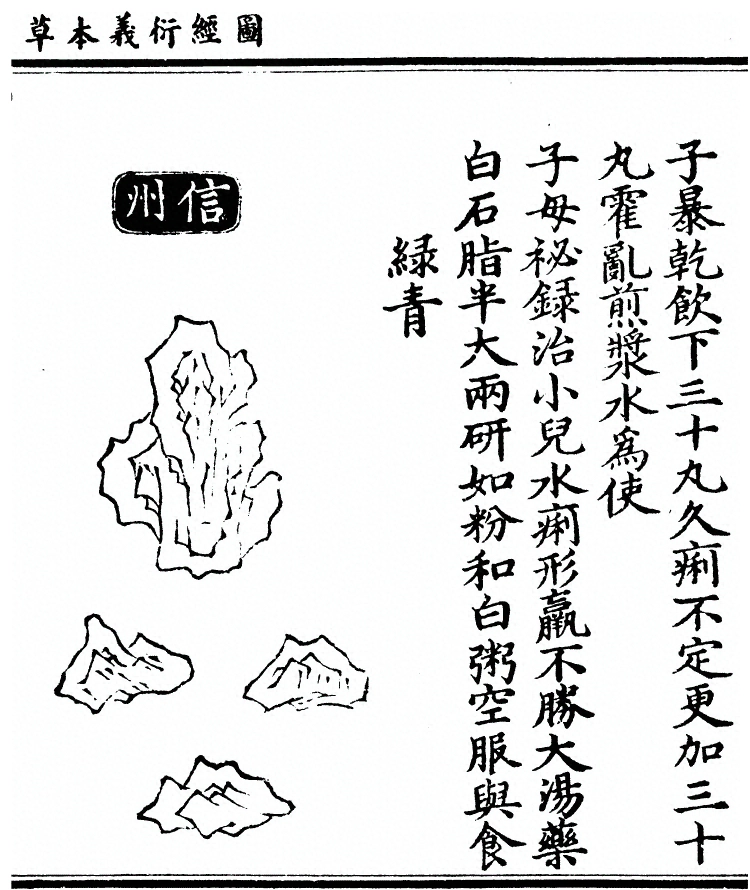 圖經衍義本草
子暴乾飲下三十丸久痢不定更加三十
丸霍亂煎漿水為使
子母祕録治小兒水痢形羸不勝大湯藥
白石脂半大兩研如粉和白粥空服與食
緑青
信州